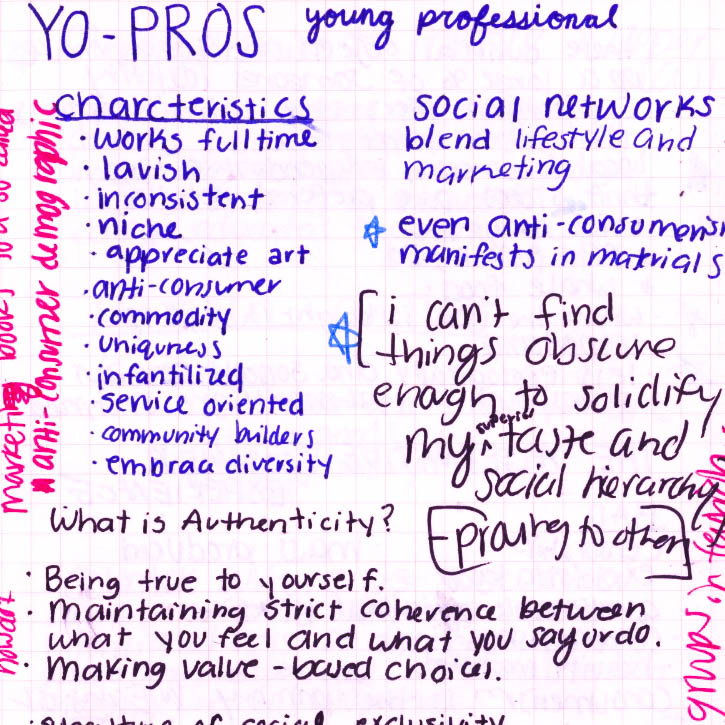 YO-PROS young professional
charcteristics
• works full time
• lavish
• inconsistent
• niche
• appreciate art
• anti-consumer
• commodity
• uniquness
• infantilized
• service oriented
• community builders
• embrace diversity
social networks
blend lifestyle and
marketing
even anti-consumeris
manifests in matrials
i can't find
things obscure
enough to solidify
my superior taste and
social hierarchy
to other
What is Authenticity?
• Being true to yourself.
• Maintaining strict coherence between
what you feel and what you say or do.
• Making value-based choices.
of social exclusivity
marketing books
anti-consumer demographic
groups in